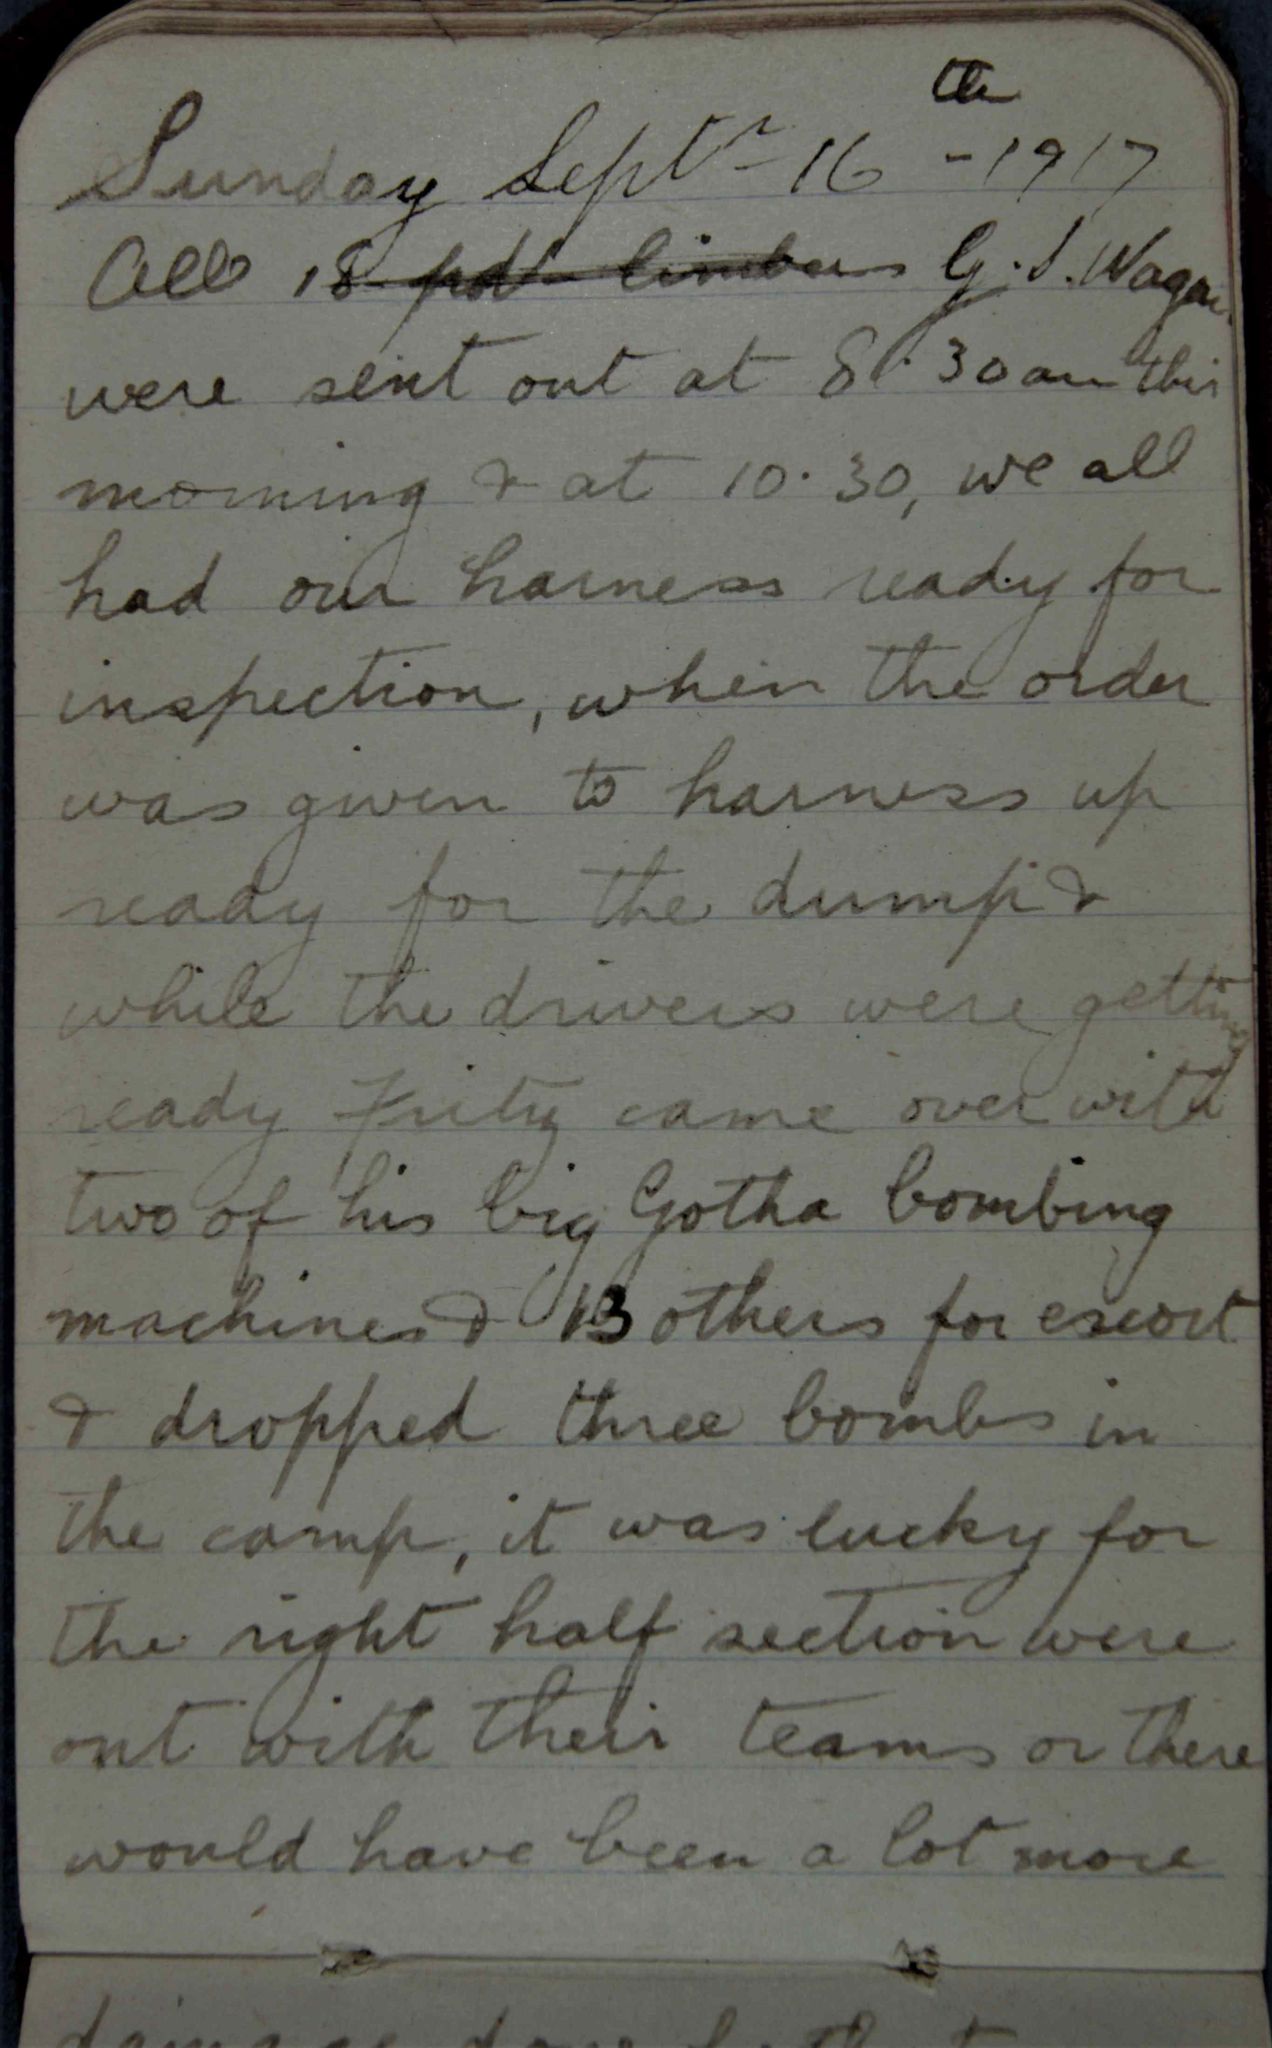 Sunday Septr - 16th - 1917
All 18 pdr limbers G.S. Wagons
were sent out at 8.30 am this
morning & at 10.30, we all
had our harness ready for
inspection, when the order
was given to harness up
ready for the dump &
while the drivers were getting
ready Fritz came over with
two of his big Gotha bombing
machines & 13 others for escort
& dropped three bombs in
the camp, it was lucky for
the right half section were
out with their teams or there
would have been a lot more
damage done